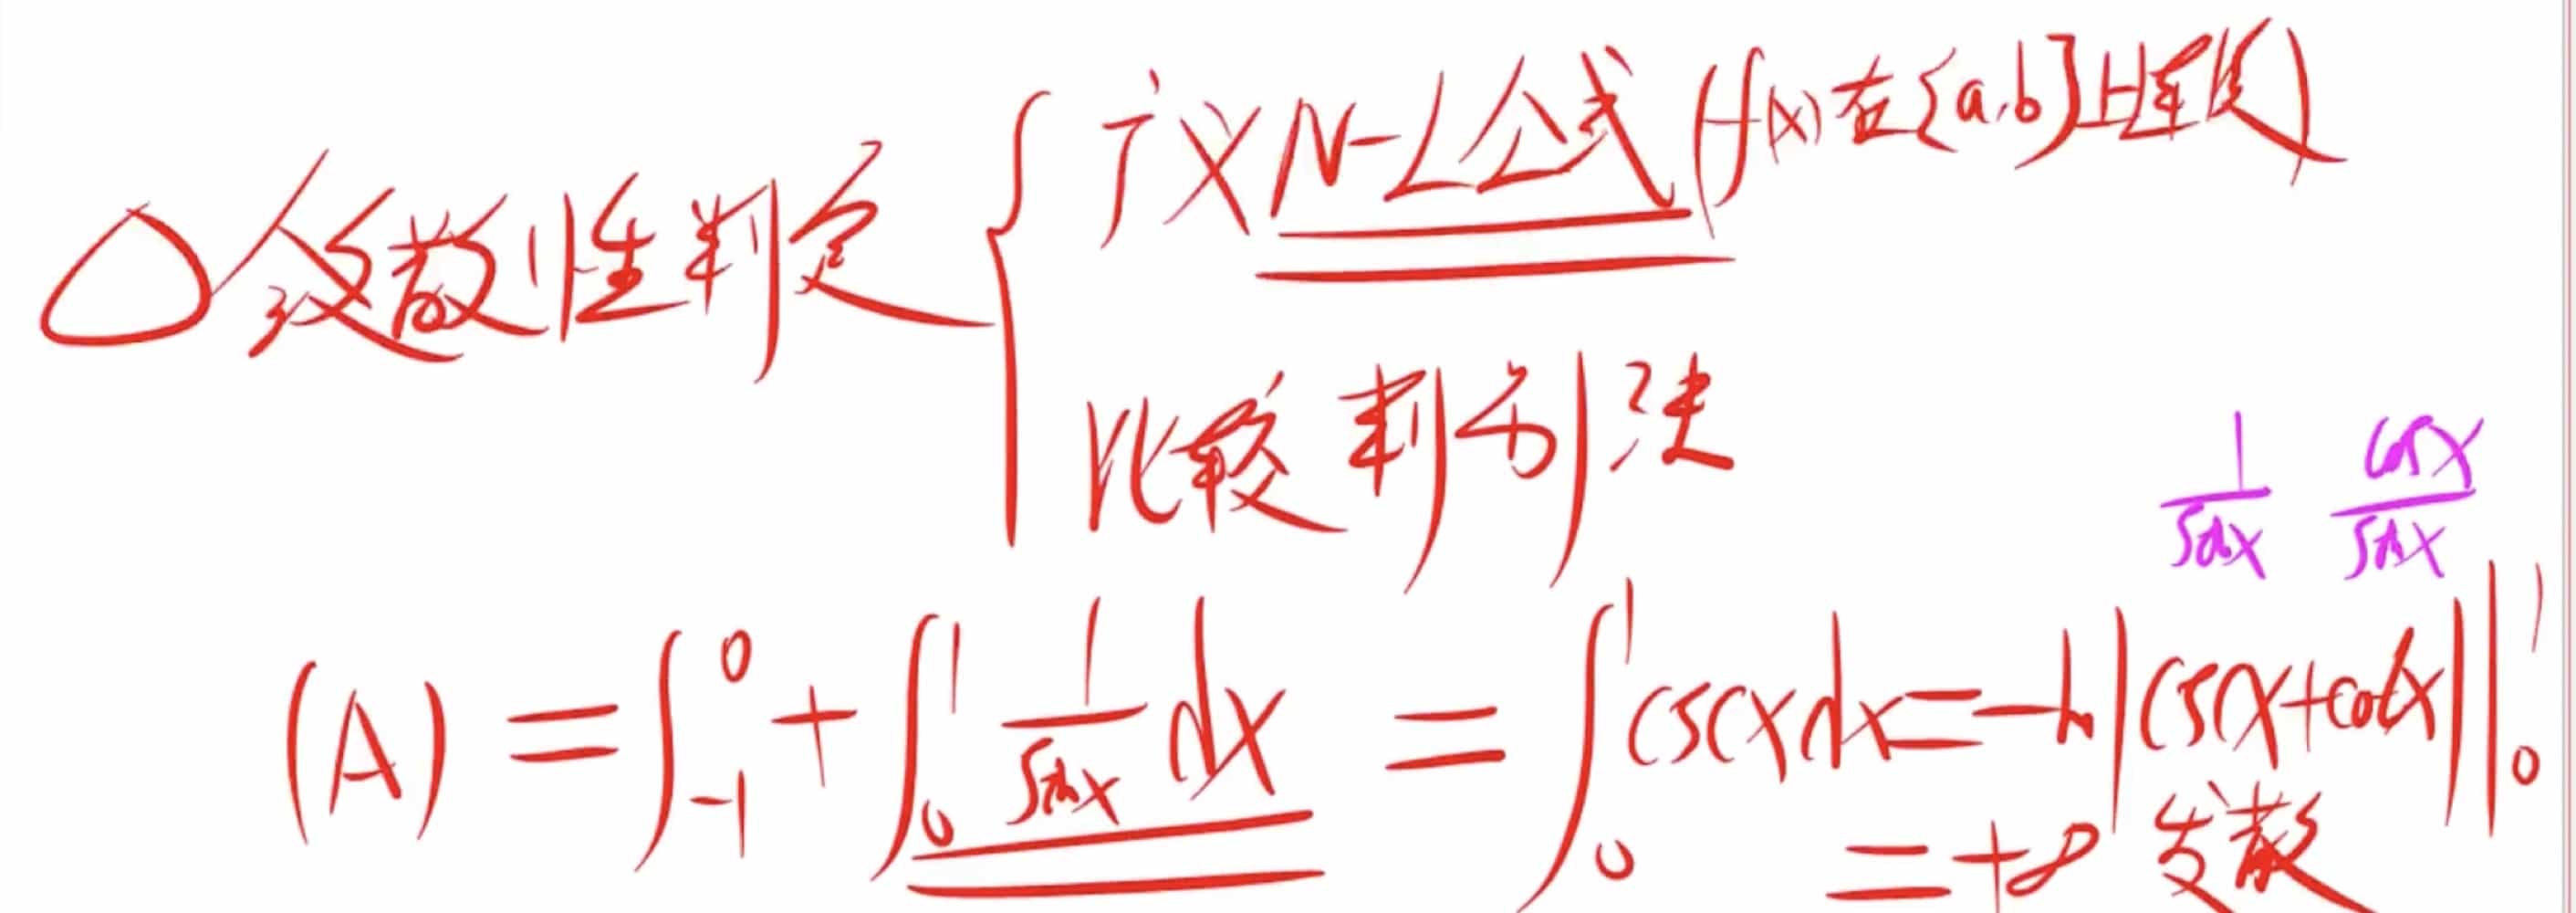 敛散性判定
广义N-L公式 (f(x)在[a,b]上连续)
比较判别法
1/sinx cosx/sinx
(A) = ∫_{-1}^{0} + ∫_{0}^{1} 1/sinx dx = ∫_{0}^{1} cscx dx = -ln|cscx+cotx| |_{0}^{1}
= +∞ 发散